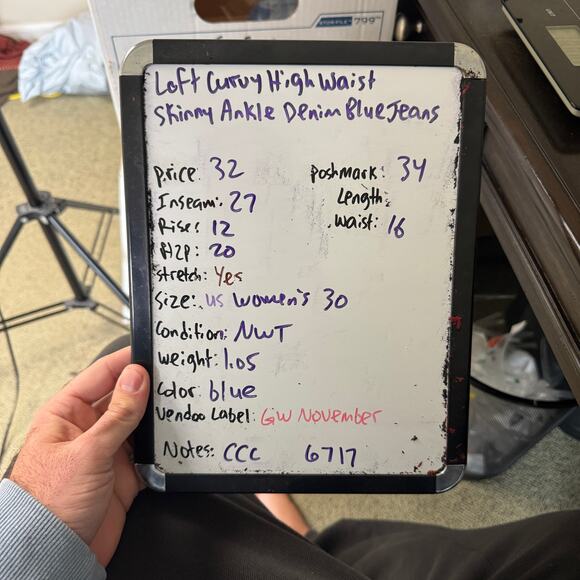 STOR/FILE 799
Loft Curvy High Waist
Skinny Ankle Denim Blue Jeans
price: 32 poshmark: 34
Inseam: 27 Length:
Rise: 12 Waist: 16
P2P: 20
stretch: Yes
Size: US Women's 30
Condition: NWT
weight: 1.05
Color: blue
Vendoo Label: GW November
Notes: CCC 6717